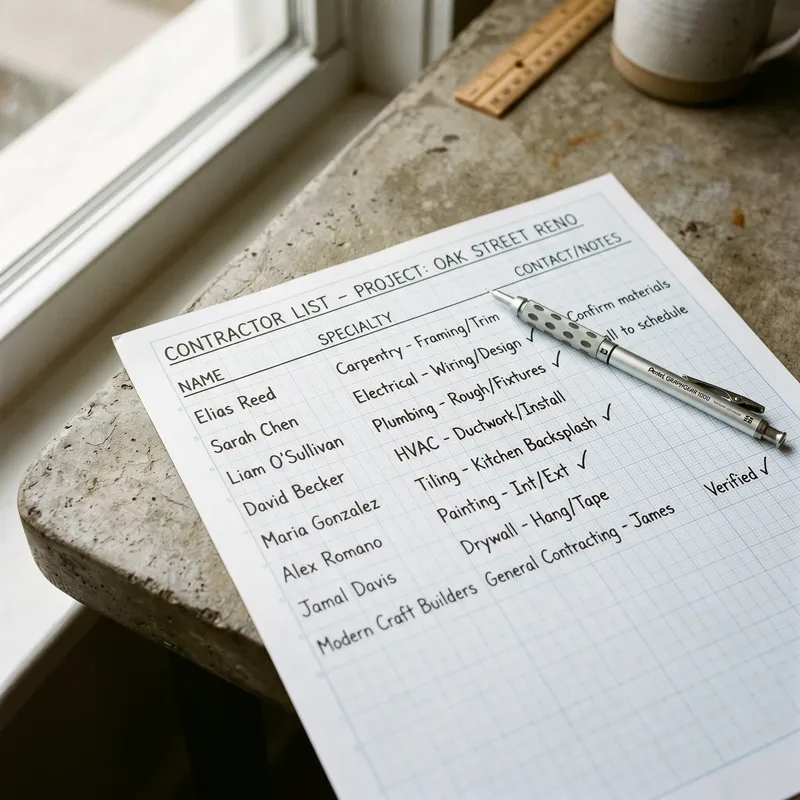 CONTRACTOR LIST – PROJECT: OAK STREET RENO
NAME SPECIALTY CONTACT/NOTES
Elias Reed Carpentry - Framing/Trim Confirm materials
Sarah Chen Electrical - Wiring/Design ✓ to schedule
Liam O'Sullivan Plumbing - Rough/Fixtures ✓
David Becker HVAC - Ductwork/Install
Maria Gonzalez Tiling - Kitchen Backsplash ✓
Alex Romano Painting - Int/Ext ✓
Jamal Davis Drywall - Hang/Tape
Modern Craft Builders General Contracting - James Verified ✓
Pentel GRAPHGEAR 1000